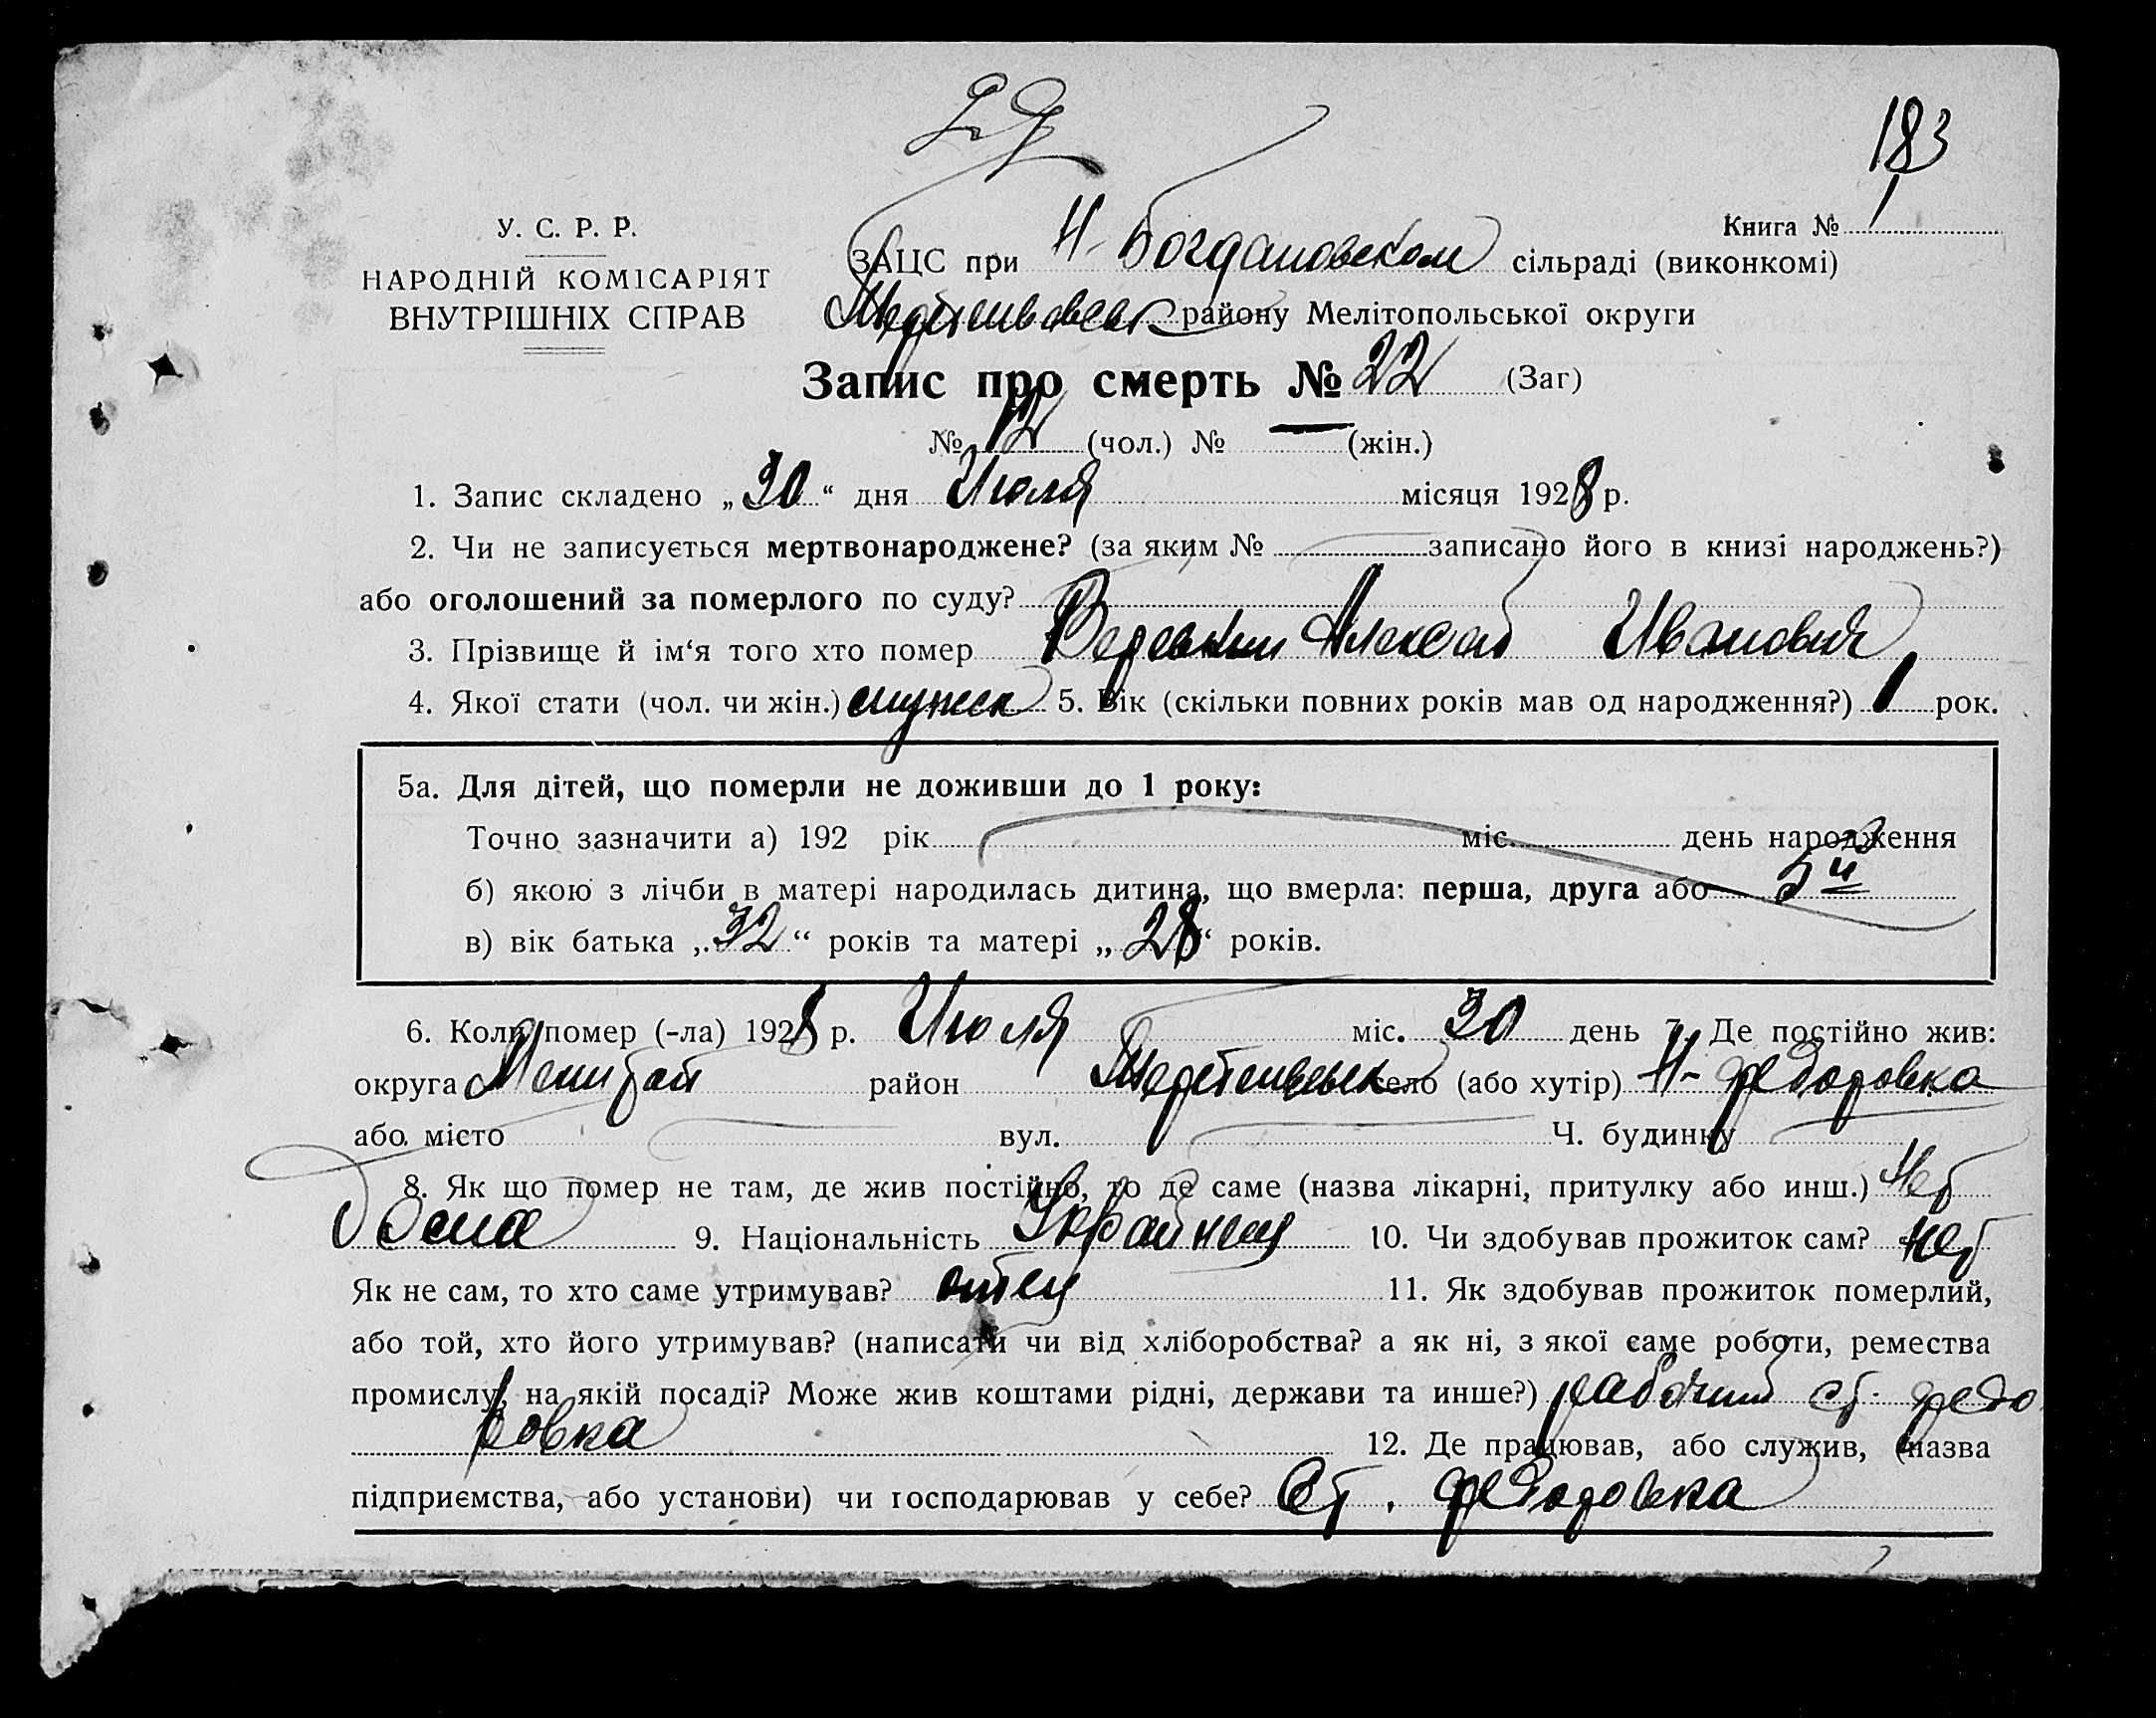 183
У. С. Р. Р.
НАРОДНІЙ КОМІСАРІЯТ
ВНУТРІШНІХ СПРАВ
Книга № 1
ЗАЦС при Н-Богдановском сільраді (виконкомі)
району Мелітопольської округи
Запис про смерть № 22 (Заг)
№ 12 (чол.) № — (жін.)
1. Запис складено „30“ дня Июля місяця 1928 р.
2. Чи не записується мертвонароджене? (за яким № записано його в книзі народжень?)
або оголошений за померлого по суду?
3. Прізвище й ім‘я того хто помер Веревкин Алексей Иванович
4. Якої стати (чол. чи жін.) мужск 5. Вік (скільки повних років мав од народження?) 1 рок.
5а. Для дітей, що померли не доживши до 1 року:
Точно зазначити а) 192 рік міс. день народження
б) якою з лічби в матері народилась дитина, що вмерла: перша, друга або 5й
в) вік батька „32“ років та матері „28“ років.
6. Коли помер (-ла) 1928 р. Июля міс. 30 день 7. Де постійно жив:
округа район село (або хутір) Н-Федоровка
або місто вул. Ч. будинку
8. Як що помер не там, де жив постійно, то де саме (назва лікарні, притулку або инш.) Нет
дома 9. Національність Украйнец 10. Чи здобував прожиток сам? нет
Як не сам, то хто саме утримував? отец 11. Як здобував прожиток померлий,
або той, хто його утримував? (написати чи від хліборобства? а як ні, з якої саме роботи, ремества
промислу, на якій посаді? Може жив коштами рідні, держави та инше?) рабочий ст. Федо
ровка 12. Де працював, або служив, (назва
підприємства, або установи) чи господарював у себе? Ст. Федоровка